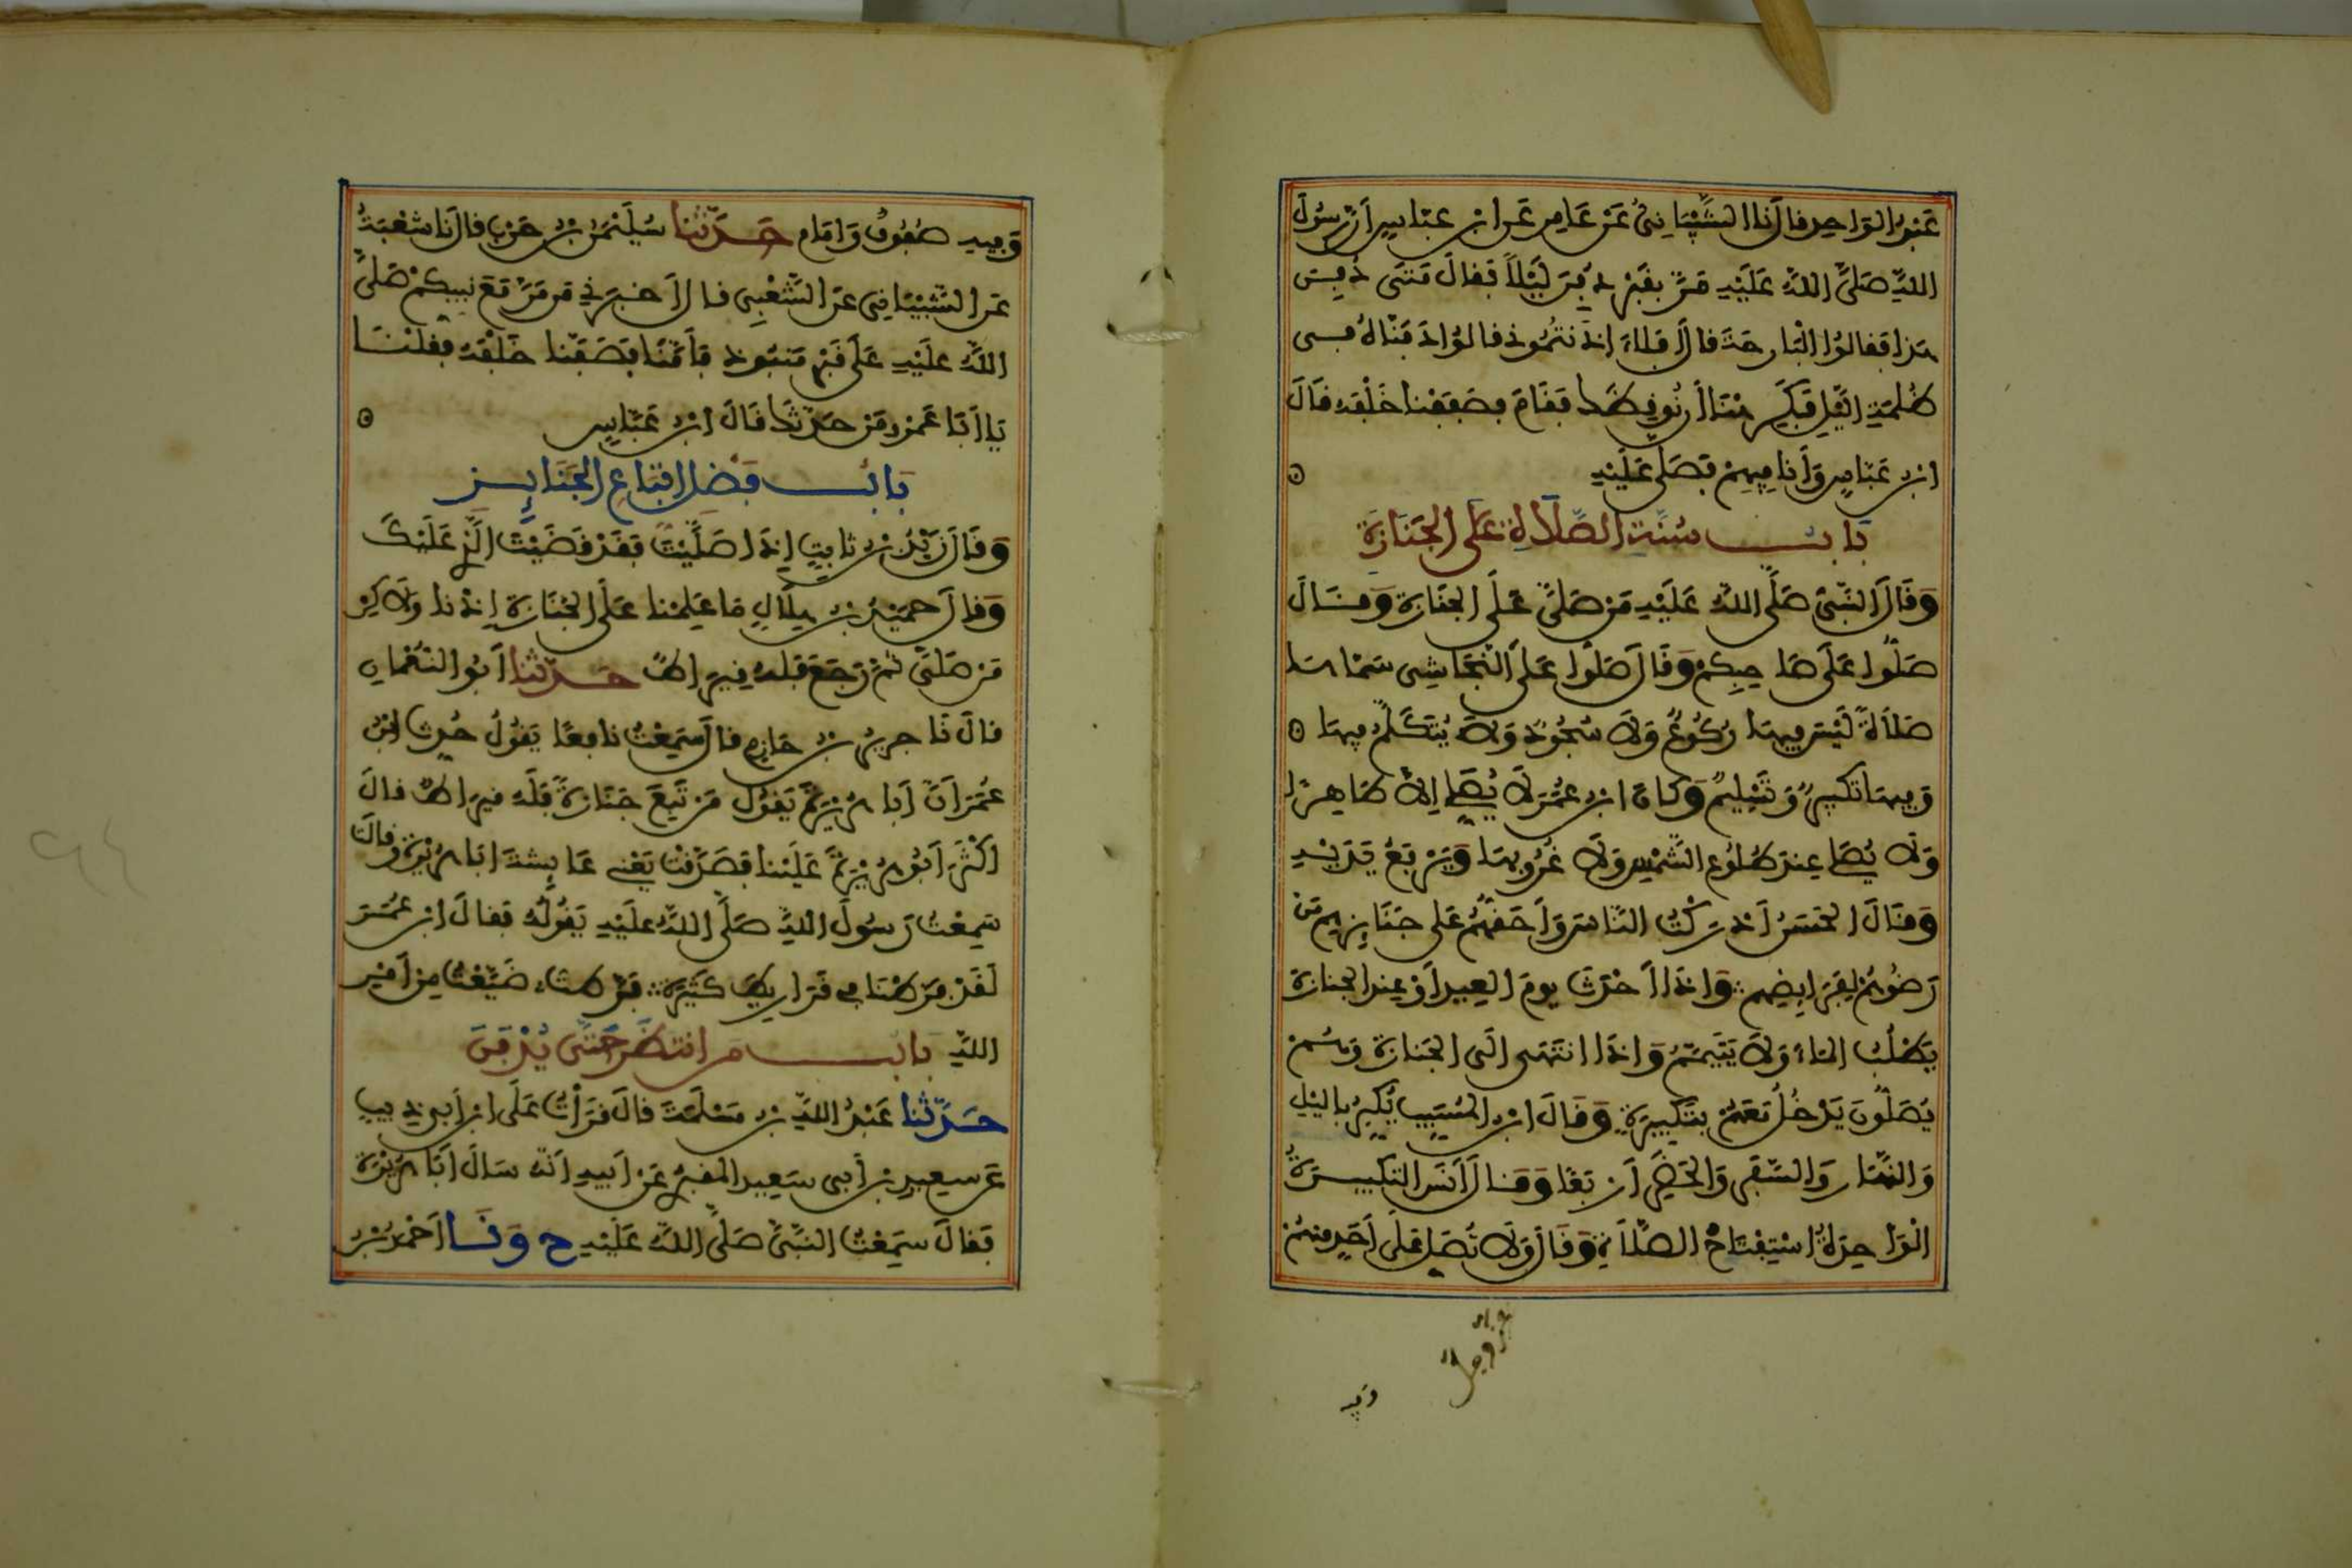 عَبْدُ الوَاحِدِ قالَ نَا الشَّيْبَانِيُّ عَنْ عَامِرٍ عَنِ ابْنِ عَبَّاسٍ أَنَّ رَسُولَ
اللهِ صَلَّى اللهُ عَلَيْهِ مَرَّ بِقَبْرٍ دُفِنَ لَيْلاً فَقالَ مَتَى دُفِنَ
هَذَا فَقَالُوا الْبَارِحَةَ قَالَ أَفَلاَ آذَنْتُمُونِي قالُوا دَفَنَّاهُ فِي
ظُلْمَةِ اللَّيْلِ فَكَرِهْنَا أَنْ نُوقِظَكَ فَقَامَ فَصَفَفْنَا خَلْفَهُ قَالَ
ابْنُ عَبَّاسٍ وَأَنَا فِيهِمْ فَصَلَّى عَلَيْهِ
بَابُ سُنَّةِ الصَّلاَةِ عَلَى الجَنَازَةِ
وَقَالَ النَّبِيُّ صَلَّى اللهُ عَلَيْهِ مَنْ صَلَّى عَلَى الجَنَازَةِ وَقَالَ
صَلُّوا عَلَى صَاحِبِكُمْ وَقَالَ صَلُّوا عَلَى النَّجَاشِي سَمَّاهَا
صَلاَةً لَيْسَ فِيهَا رُكُوعٌ وَلاَ سُجُودٌ وَلاَ يُتَكَلَّمُ فِيهَا
وَفِيهَا تَكْبِيرٌ وَتَسْلِيمٌ وَكَانَ ابْنُ عُمَرَ لاَ يُصَلِّي إِلاَّ طَاهِرًا
وَلاَ يُصَلِّي عِنْدَ طُلُوعِ الشَّمْسِ وَلاَ غُرُوبِهَا وَيَرْفَعُ يَدَيْهِ
وَقَالَ الحَسَنُ أَدْرَكْتُ النَّاسَ وَأَحَقُّهُمْ عَلَى جَنَائِزِهِمْ مَنْ
رَضُوهُمْ لِفَرَائِضِهِمْ وَإِذَا أَحْدَثَ يومَ العِيدِ أَوْ عِنْدَ الجنازةِ
يَطْلُبُ المَاءَ وَلاَ يَتَيَمَّمُ وَإِذَا انْتَهَى إلَى الجَنازةِ وَهُمْ
يُصَلُّونَ يَدْخُلُ مَعَهُمْ بِتَكْبِيرَةٍ وَقَالَ ابْنُ المُسَيَّبِ يُكَبِّرُ بِاللَّيْلِ
وَالنَّهَارِ وَالسَّفَرِ وَالحَضَرِ أَرْبَعًا وَقَالَ أَنَسٌ التَّكْبِيرَةُ
الْوَاحِدَةُ اسْتِفْتَاحُ الصَّلاَةِ وَقَالَ وَلاَ تُصَلِّ عَلَى أَحَدٍ مِنْهُمْ
وَفِيهِ
وَفِيهِ صُفُوفٌ وَإمَامٌ حَدَّثَنَا سُلَيْمَنُ بْنُ حَرْبٍ قالَ نَا شُعْبَةُ
عَنِ الشَّيْبَانِي عَنِ الشَّعْبِي قالَ أَخْبَرَنِي مَنْ مَرَّ مَعَ نَبِيِّكُمْ صَلَّى
اللهُ عَلَيْهِ عَلَى قَبْرٍ مَنْبُوذٍ فَأَمَّنَا فَصَفَفْنَا خَلْفَهُ فَقُلْنَا
يَا أَبَا عَمْرٍو مَنْ حَدَّثَكَ قَالَ ابْنُ عَبَّاسٍ
بَابُ فَضْلِ اتِّبَاعِ الجَنَائِزِ
وَقَالَ زَيْدُ بْنُ ثَابِتٍ إِذَا صَلَّيْتَ فَقَدْ قَضَيْتَ الَّذِي عَلَيْكَ
وَقَالَ حُمَيْدُ بْنُ هِلاَلٍ مَا عَلِمْنَا عَلَى الجَنَازَةِ إِذْنًا وَلاَكِنْ
مَنْ صَلَّى ثُمَّ رَجَعَ فَلَهُ قِيرَاطٌ حَدَّثَنَا أَبُو النُّعْمَانِ
قالَ نَا جرِيرُ بْنُ حَازِمٍ قالَ سَمِعْتُ نافِعًا يَقُولُ حُدِّثَ ابْنُ
عُمَرَ أَنَّ أَبَا هُرَيْرَةَ يَقُولُ مَنْ تَبِعَ جَنَازَةً فَلَهُ قِيرَاطٌ قالَ
أَكْثَرَ أَبُو هُرَيْرَةَ عَلَيْنَا فَصَدَّقَتْ يَعْنِي عَائِشَةَ أَبَا هُرَيْرَةَ وَقَالَتْ
سَمِعْتُ رَسُولَ اللهِ صَلَّى اللهُ عَلَيْهِ يَقُولُهُ فَقَالَ ابْنُ عُمَرَ
لَقَدْ فَرَّطْنَا فِي قَرَارِيطَ كَثِيرَةٍ فَرَّطتُ ضَيَّعْتُ مِنْ أَمْرِ
اللهِ بَابُ مَنِ انْتَظَرَ حَتَّى يُدْفَنَ
حَدَّثَنَا عَبْدُ اللهِ بْنُ مَسْلَمَةَ قَالَ قَرَأْتُ عَلَى ابْنِ أَبِي ذِيبٍ
عَنْ سَعِيدِ بْنِ أَبِي سَعِيدٍ المَقْبُرِيِّ عَنْ أَبِيهِ أَنَّهُ سَأَلَ أَبَا هُرَيْرَةَ
فَقالَ سَمِعْتُ النَّبِيَّ صَلَّى اللهُ عَلَيْهِ ح وَنَا أَحْمَدُ بْنُ